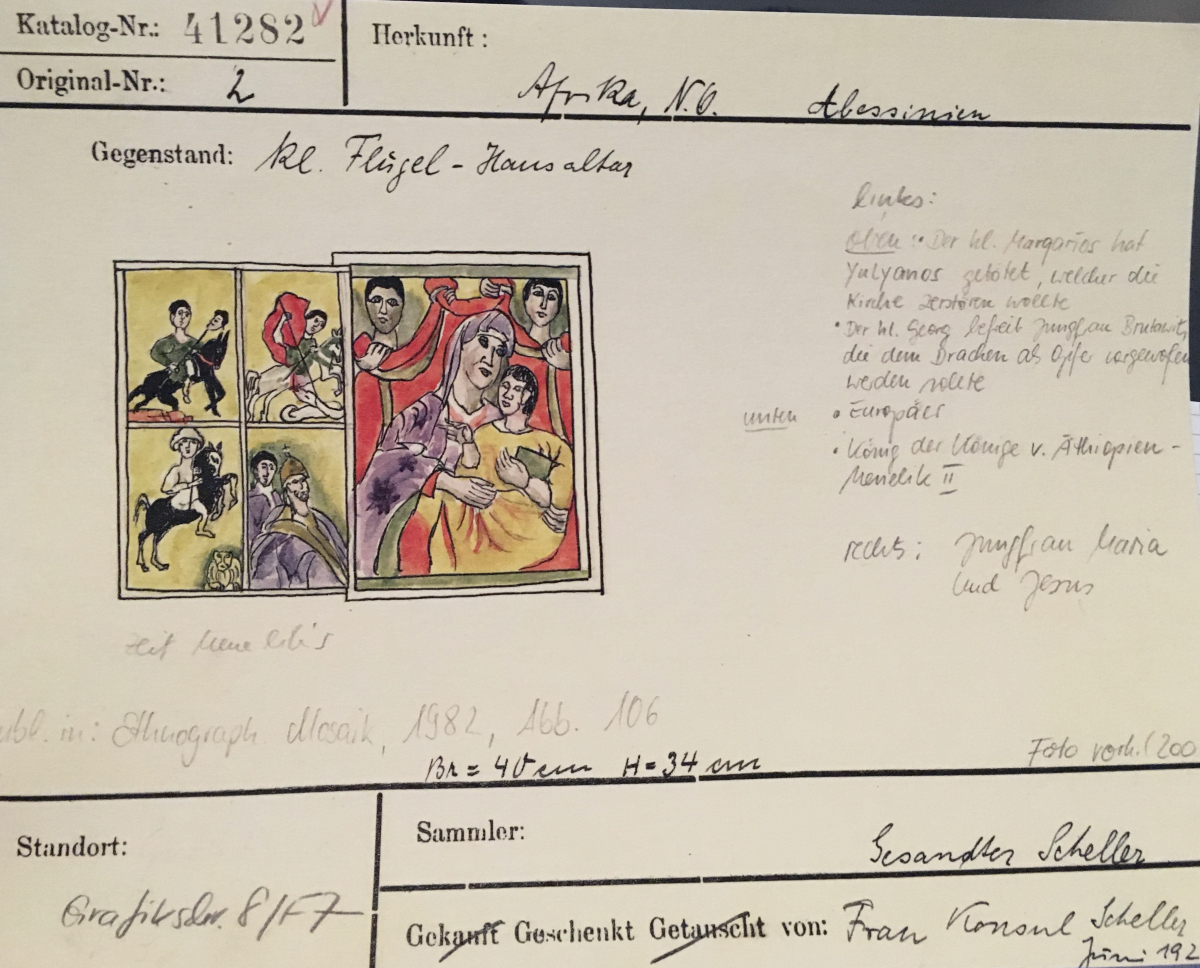 Katalog-Nr.: 41282
Herkunft:
Original-Nr.: 2
Afrika, N.O. Abessinien
Gegenstand: kl. Flügel-Hausaltar
links:
oben: • Der hl. Margarios hat
Yulyanos getötet, welcher die
Kirche zerstören wollte
• Der hl. Georg befreit Jungfrau
die dem Drachen als Opfer vorgeworfen
werden sollte
unten • Europäer
• König der Könige v. Äthiopien -
Menelik II
rechts: Jungfrau Maria
und Jesus
Zeit Menelik's
ubl. in: Ethnograph Mosaik, 1982, Abb. 106
Foto vorh. (200
Br = 40 cm H = 34 cm
Standort:
Sammler:
Gesandter Scheller
Grafikschr. 8/F7
Gekauft Geschenkt Getauscht von: Frau Konsul Scheller
Juni 192